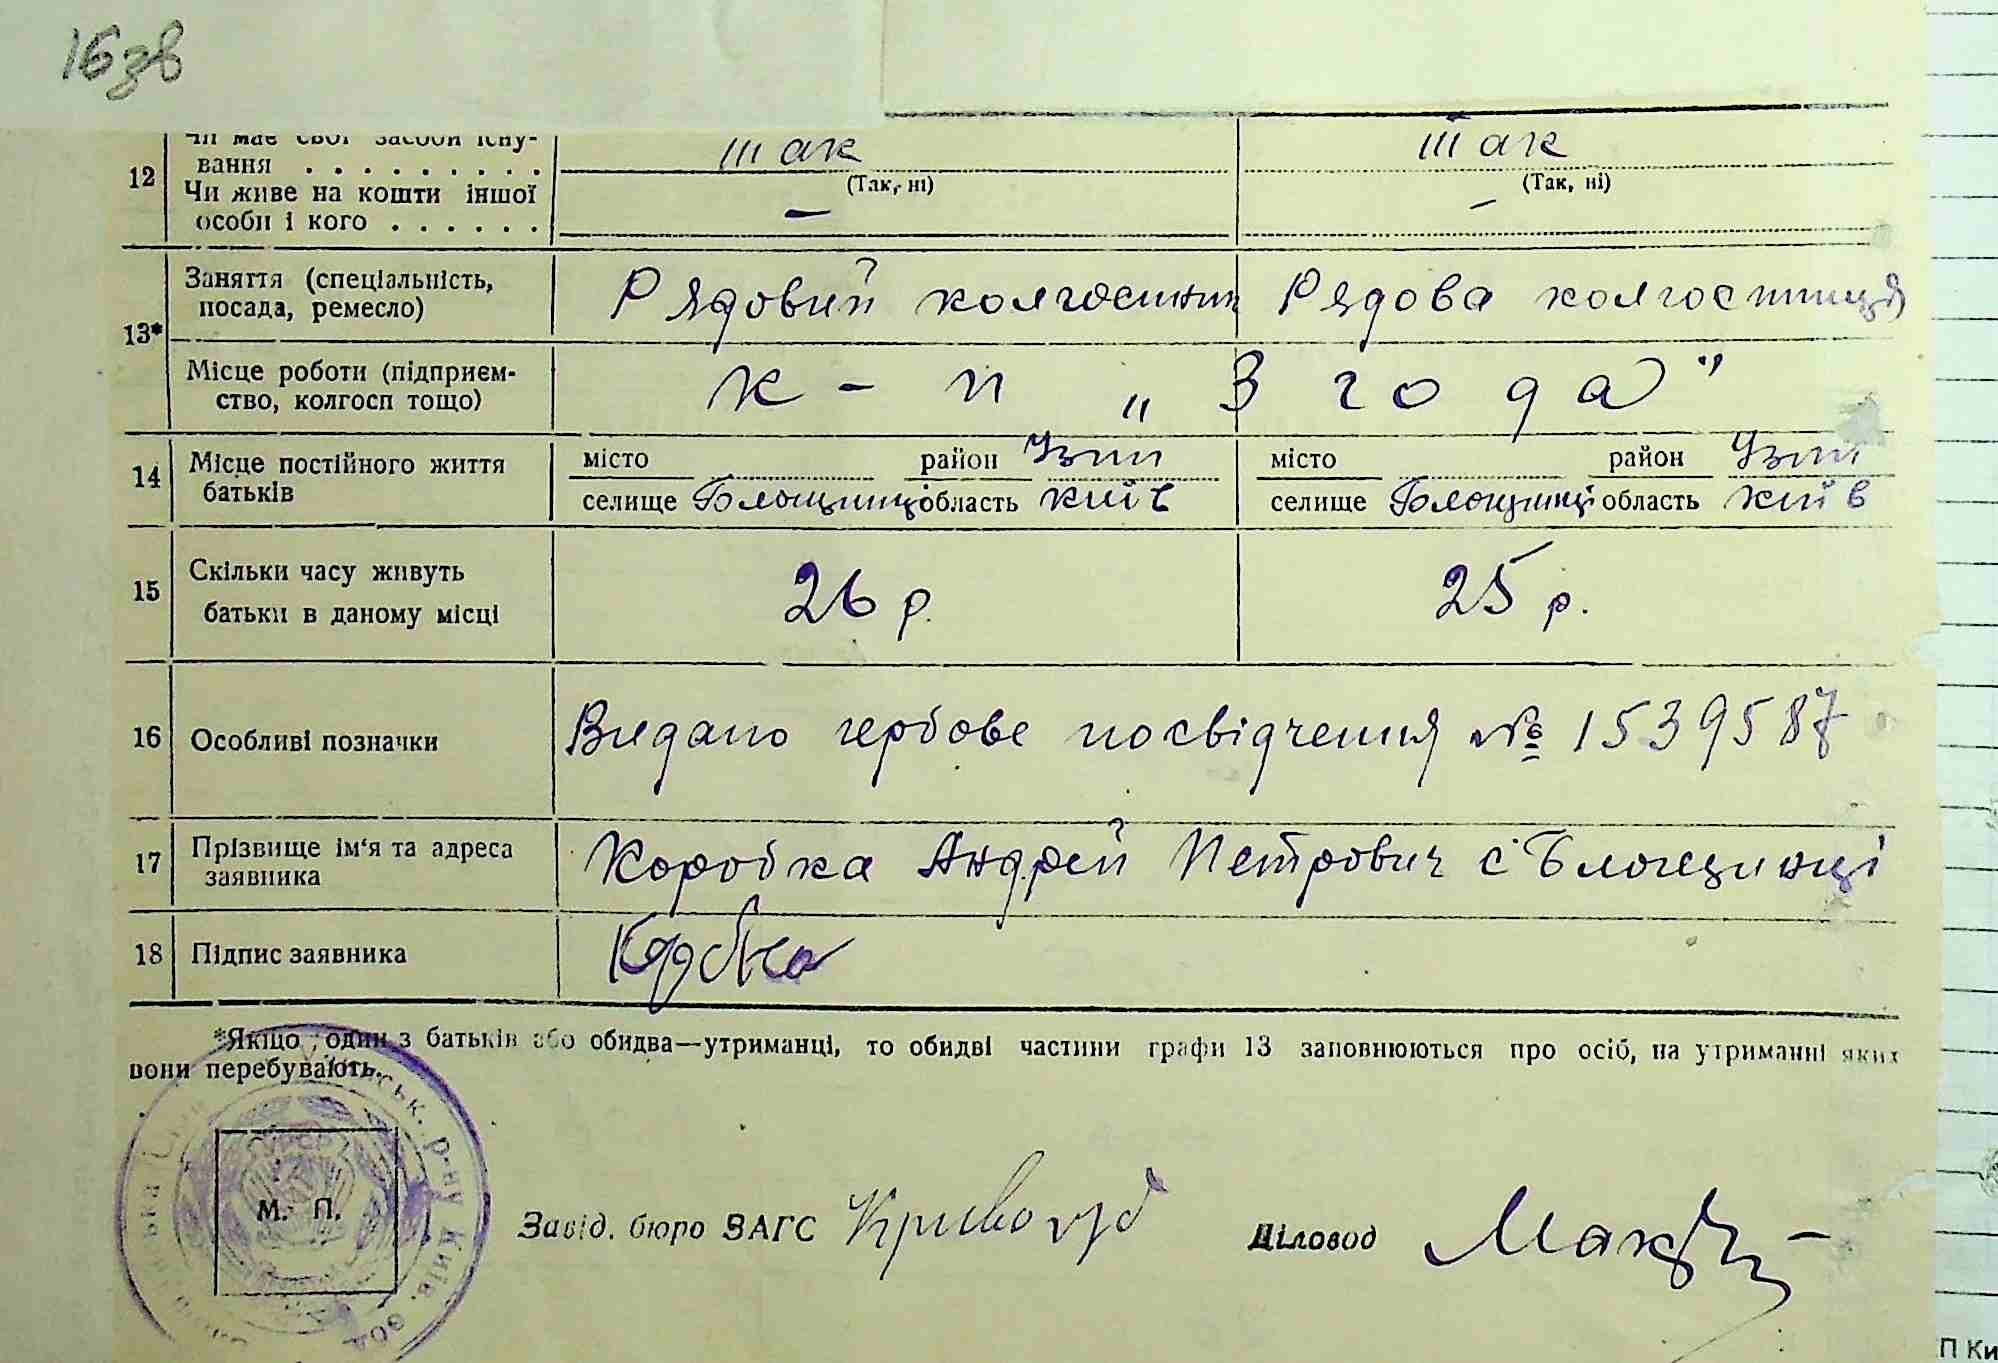 16зв
12 Чи має свої засоби існу-
вання . . . . . . . . . так так
(Так, ні) (Так, ні)
Чи живе на кошти іншої
особи і кого . . . . . . – –
13* Заняття (спеціальність,
посада, ремесло) Рядовий колгоспник Рядова колгоспниця
Місце роботи (підприєм-
ство, колгосп тощо) к-п „Згода"
14 Місце постійного життя
батьків
місто район Узин місто район Узин
селище Блощинці область Київ селище Блощинці область Київ
15 Скільки часу живуть
батьки в даному місці 26 р. 25 р.
16 Особливі позначки Видано гербове посвідчення № 1539587
17 Прізвище ім'я та адреса
заявника Коробка Андрей Петрович с Блощинці
18 Підпис заявника Коробка
*Якщо один з батьків або обидва—утриманці, то обидві частини графи 13 заповнюються про осіб, на утриманні яких
вони перебувають.
р-ну Київ. обл
УРСР
М. П.
Завід. бюро ЗАГС
Діловод
П Ки